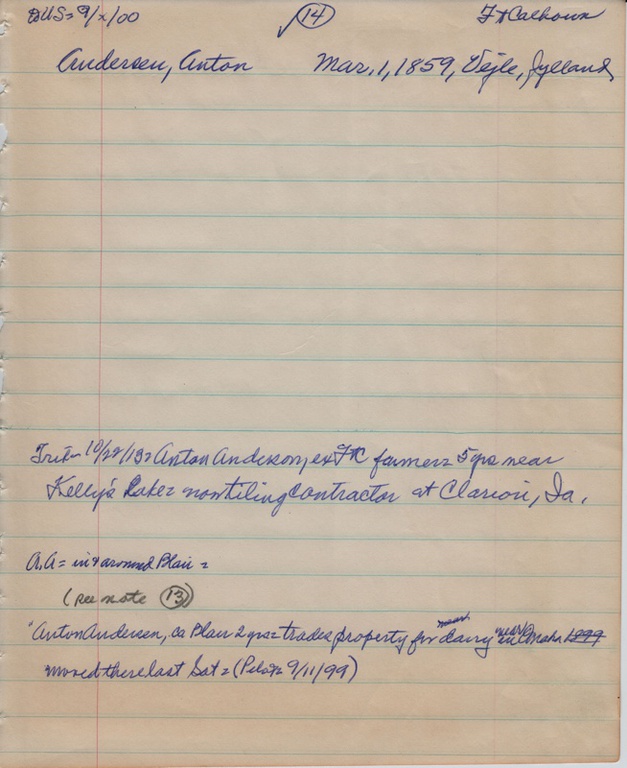 DUS= 9/x/00 ✓ (14) Ft Calhoun
Andersen, Anton Mar. 1, 1859, Vejle, Jylland,
Trib= 10/22/13= Anton Anderson, ex Ft C farmer= 5 yrs near
Kelly's Lake= now tiling contractor at Clarion, Ia.
A.A= in & around Blair=
(see note (13))
"Anton Andersen, ca Blair 2 yrs= trades property for dairy near Omaha 1899
moved there last Sat= (Pilot= 9/11/99)